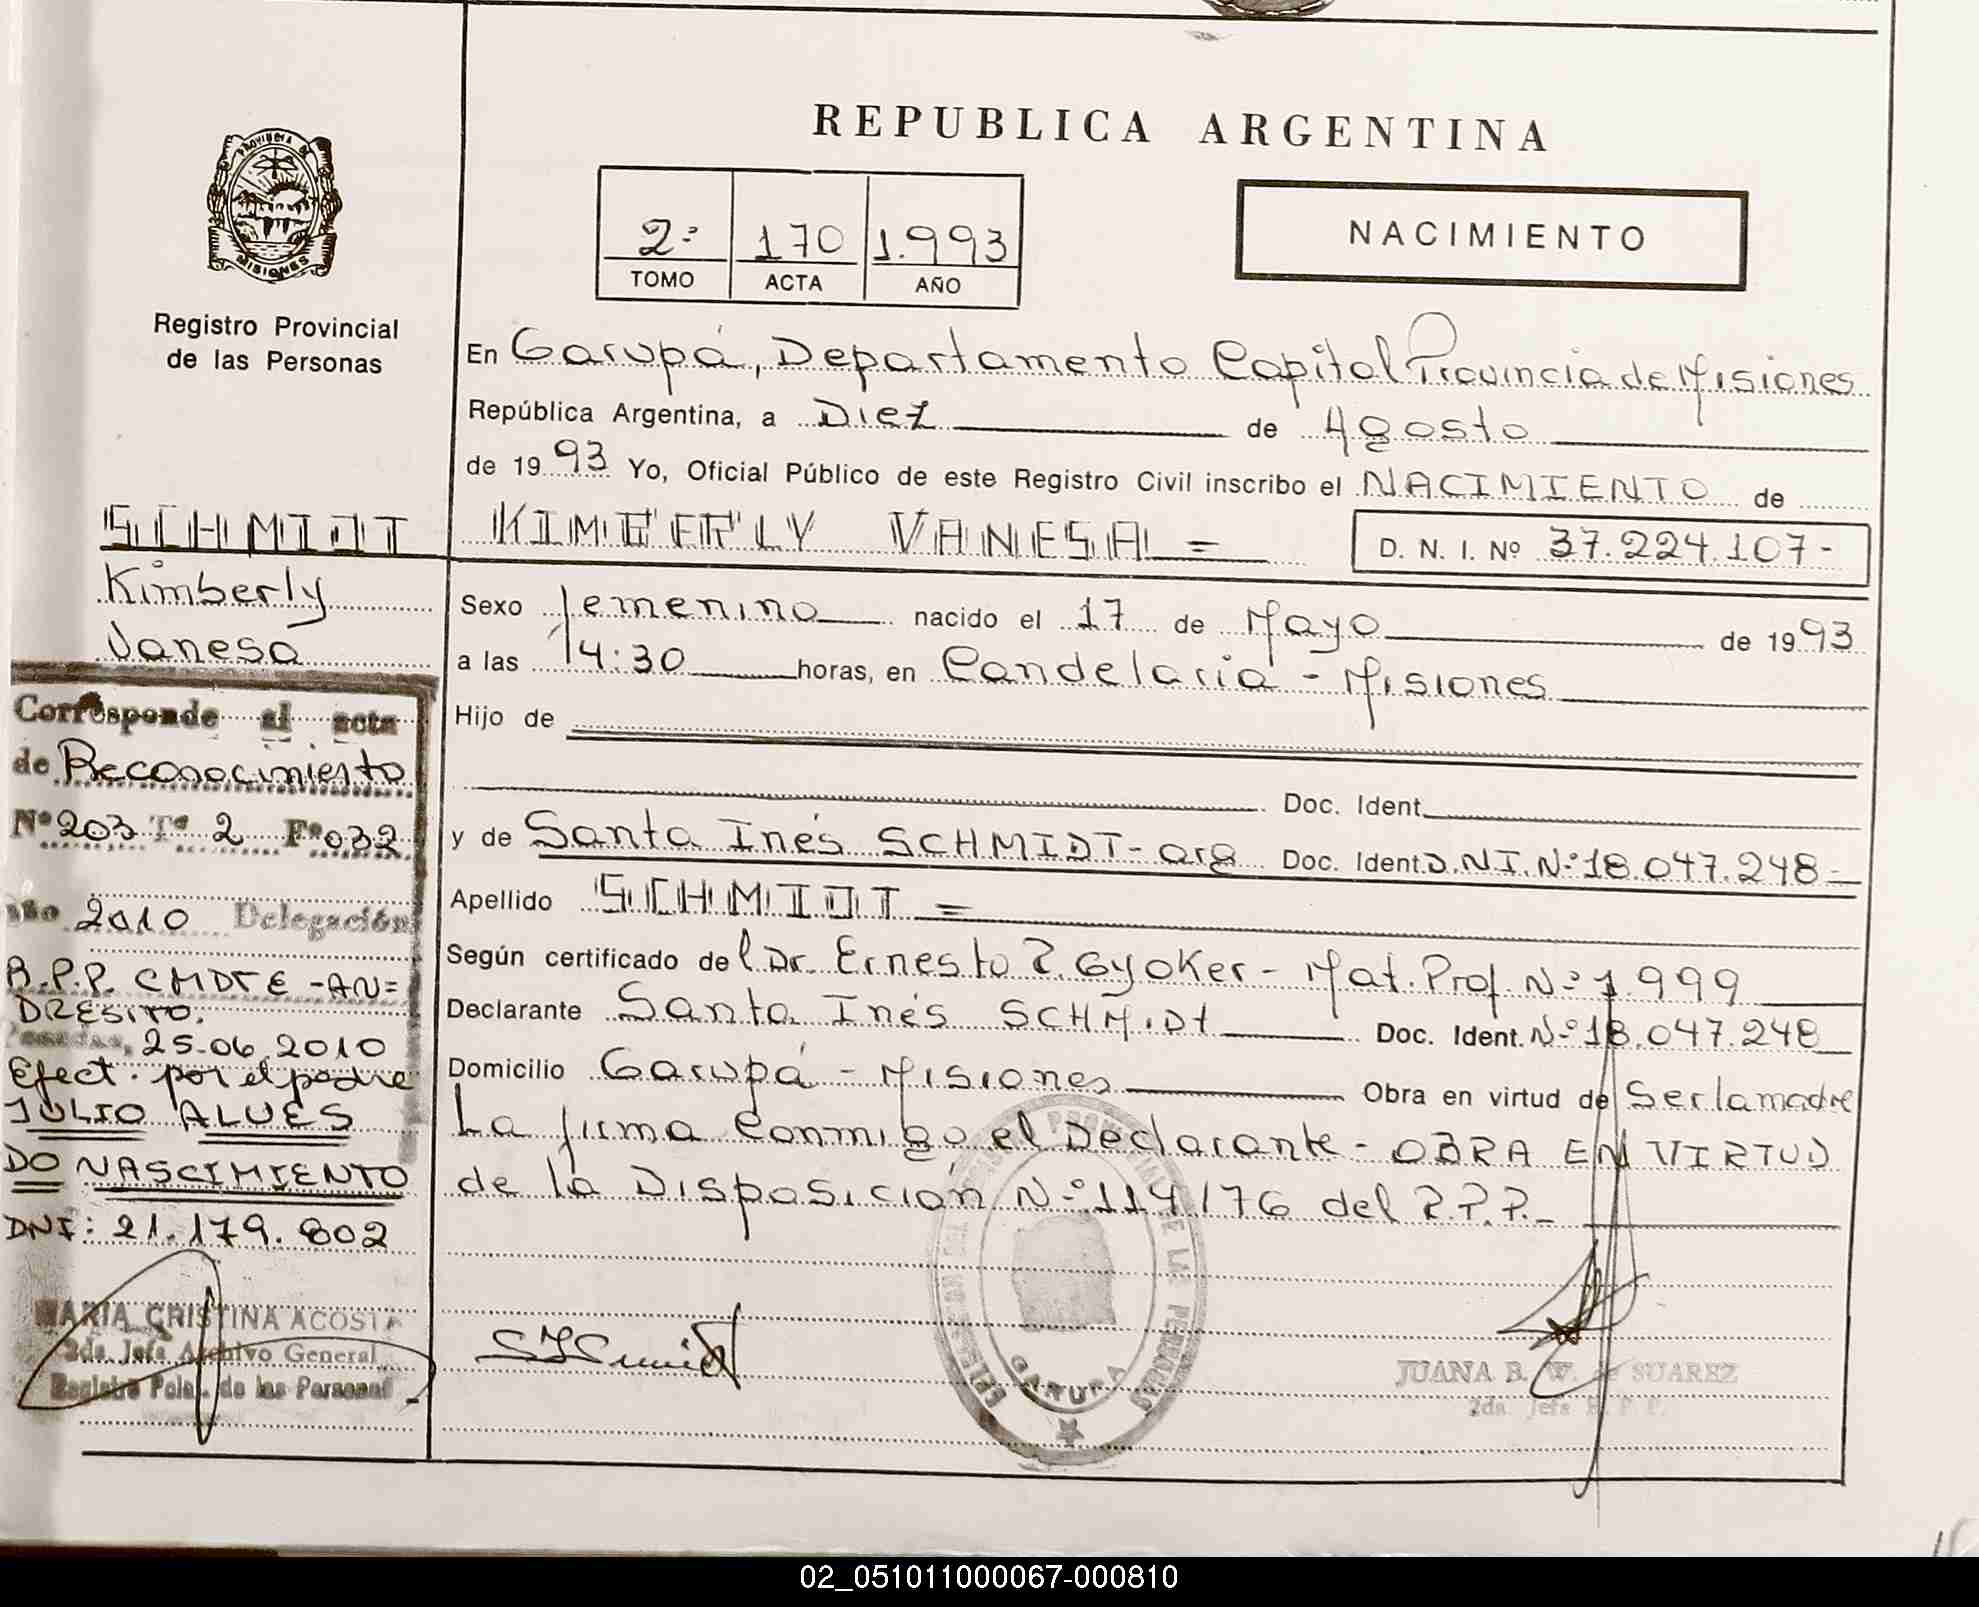 PROVINCIA DE
MISIONES
Registro Provincial
de las Personas
REPUBLICA ARGENTINA
2º 170 1.993
TOMO ACTA AÑO
NACIMIENTO
En Garupá, Departamento Capital Provincia de Misiones
República Argentina, a Diez de Agosto
de 1993 Yo, Oficial Público de este Registro Civil inscribo el NACIMIENTO de
SCHMIDT
Kimberly
Vanesa
KIMBERLY VANESA =
D. N. I. Nº 37.224.107-
Sexo femenino nacido el 17 de Mayo de 1993
a las 14:30 horas, en Candelaria - Misiones
Hijo de
Doc. Ident.
y de Santa Inés SCHMIDT - arg Doc. Ident. D.N.I. Nº 18.047.248=
Apellido SCHMIDT =
Según certificado del Dr. Ernesto R. Gyoker - Mat. Prof. Nº 1.999
Declarante Santa Inés SCHMidt Doc. Ident. Nº 18.047.248
Domicilio Garupá - Misiones Obra en virtud de Ser la madre
La firma Conmigo el Declarante - OBRA EN VIRTUD
de la Disposición Nº 114/76 del R.P.P.-
Corresponde al acta
de Reconocimiento
Nº 203 Tº 2 Fº 032
año 2010 Delegación
R.P.P. CMDTE - AN=
DRESITO.
Posadas, 25-06-2010
Efect. por el padre
JULIO ALVES
DO NASCIMIENTO
DNI: 21.179.802
MARIA CRISTINA ACOSTA
2da. Jefa Archivo General
Registro Pcial. de las Personas
GARUPA
JUANA B. W. de SUAREZ
2da. Jefa R. P. P.
02_051011000067-000810